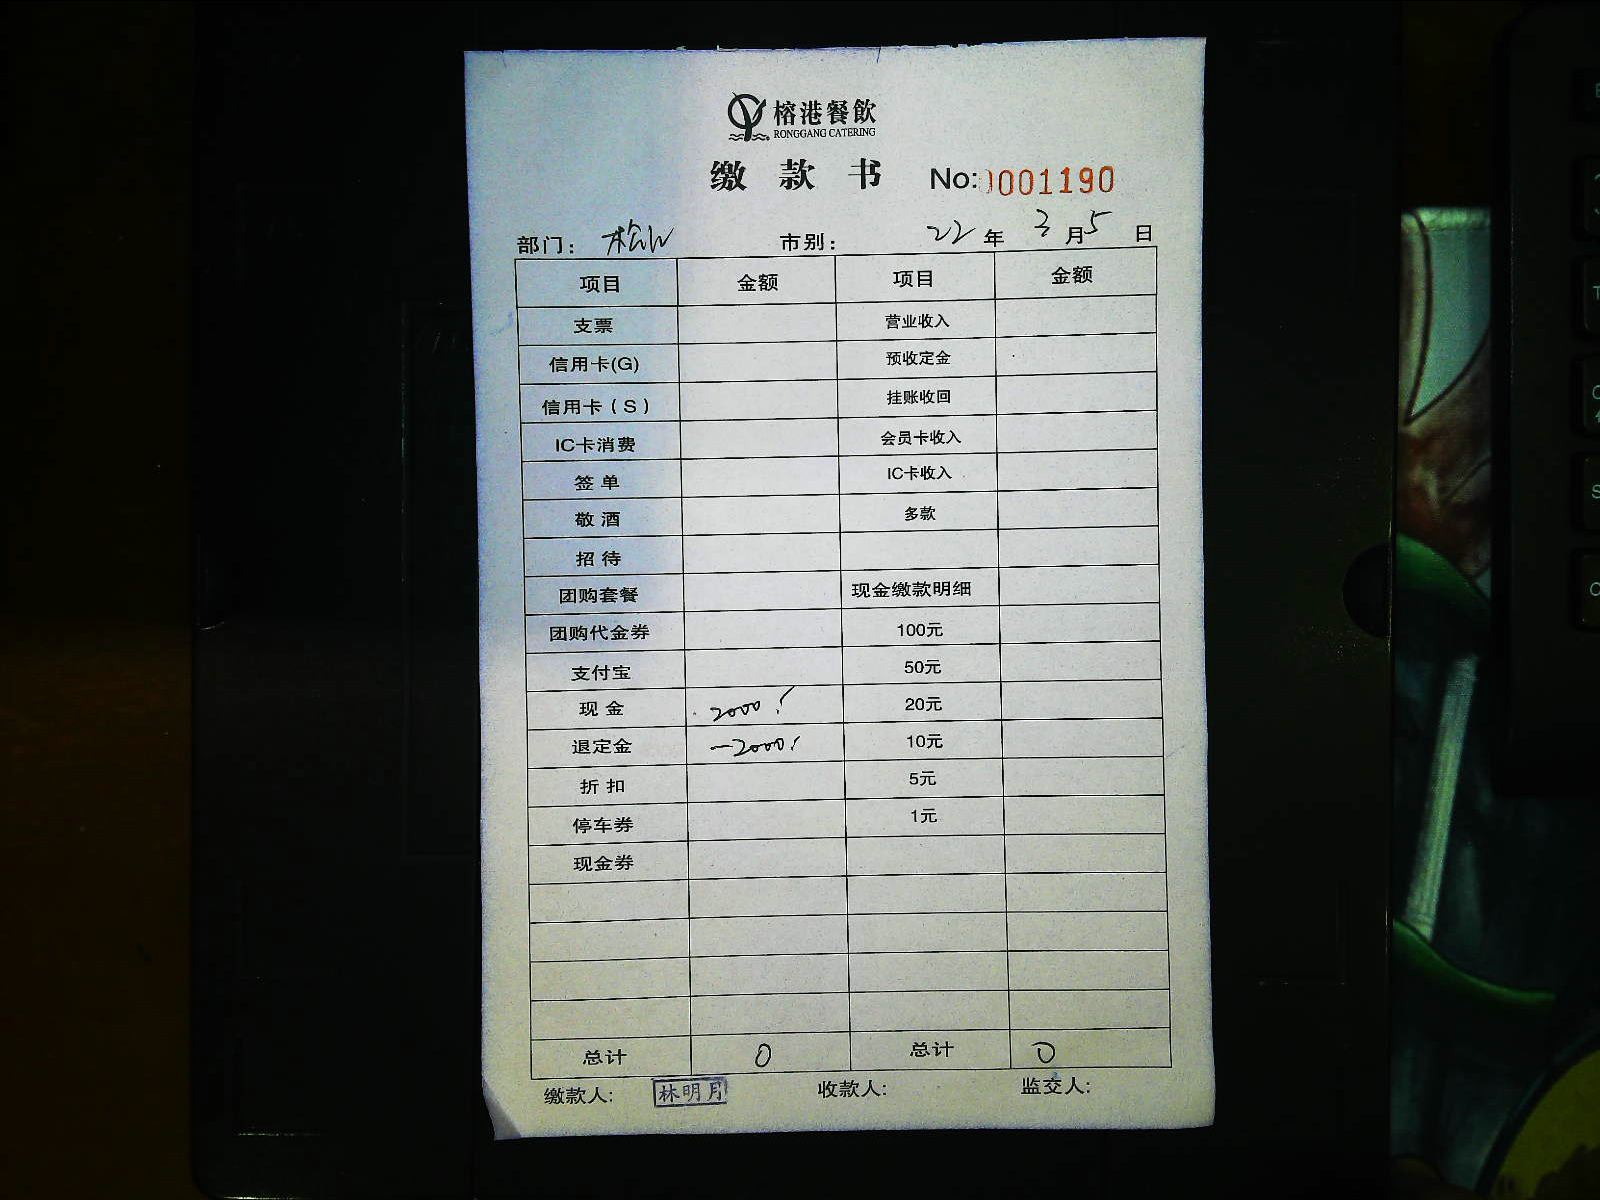 榕港餐飲
RONGGANG CATERING
缴款书 No: 0001190
部门: 松山 市别: 22年3月5日
项目 金额 项目 金额
支票 营业收入
信用卡(G) 预收定金
信用卡(S) 挂账收回
IC卡消费 会员卡收入
签单 IC卡收入
敬酒 多款
招待
团购套餐 现金缴款明细
团购代金券 100元
支付宝 50元
现金 2000 20元
退定金 -2000 10元
折扣 5元
停车券 1元
现金券
总计 0 总计 0
缴款人: 林明月 收款人: 监交人: